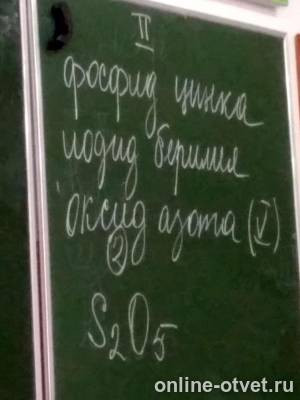 II
фосфид цинка
иодид берилия
оксид азота (V)
2
S₂O₅
online-otvet.ru